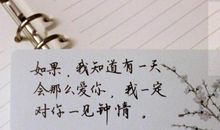 如果,我知道有一天
会那么爱你,我一定
对你一见钟情。